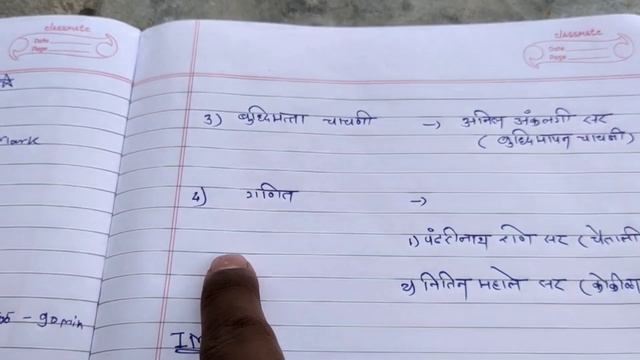 classmate
Date
Page
classmate
Date
Page
Mark
3) बुध्दिमत्ता चाचणी → अनिल अंकलगी सर
( बुध्दिमापन चाचणी)
4) गणित →
1) पंढरीनाथ राणे सर (चैताली
२) नितिन महाले सर (कोकीळा
- 90 min